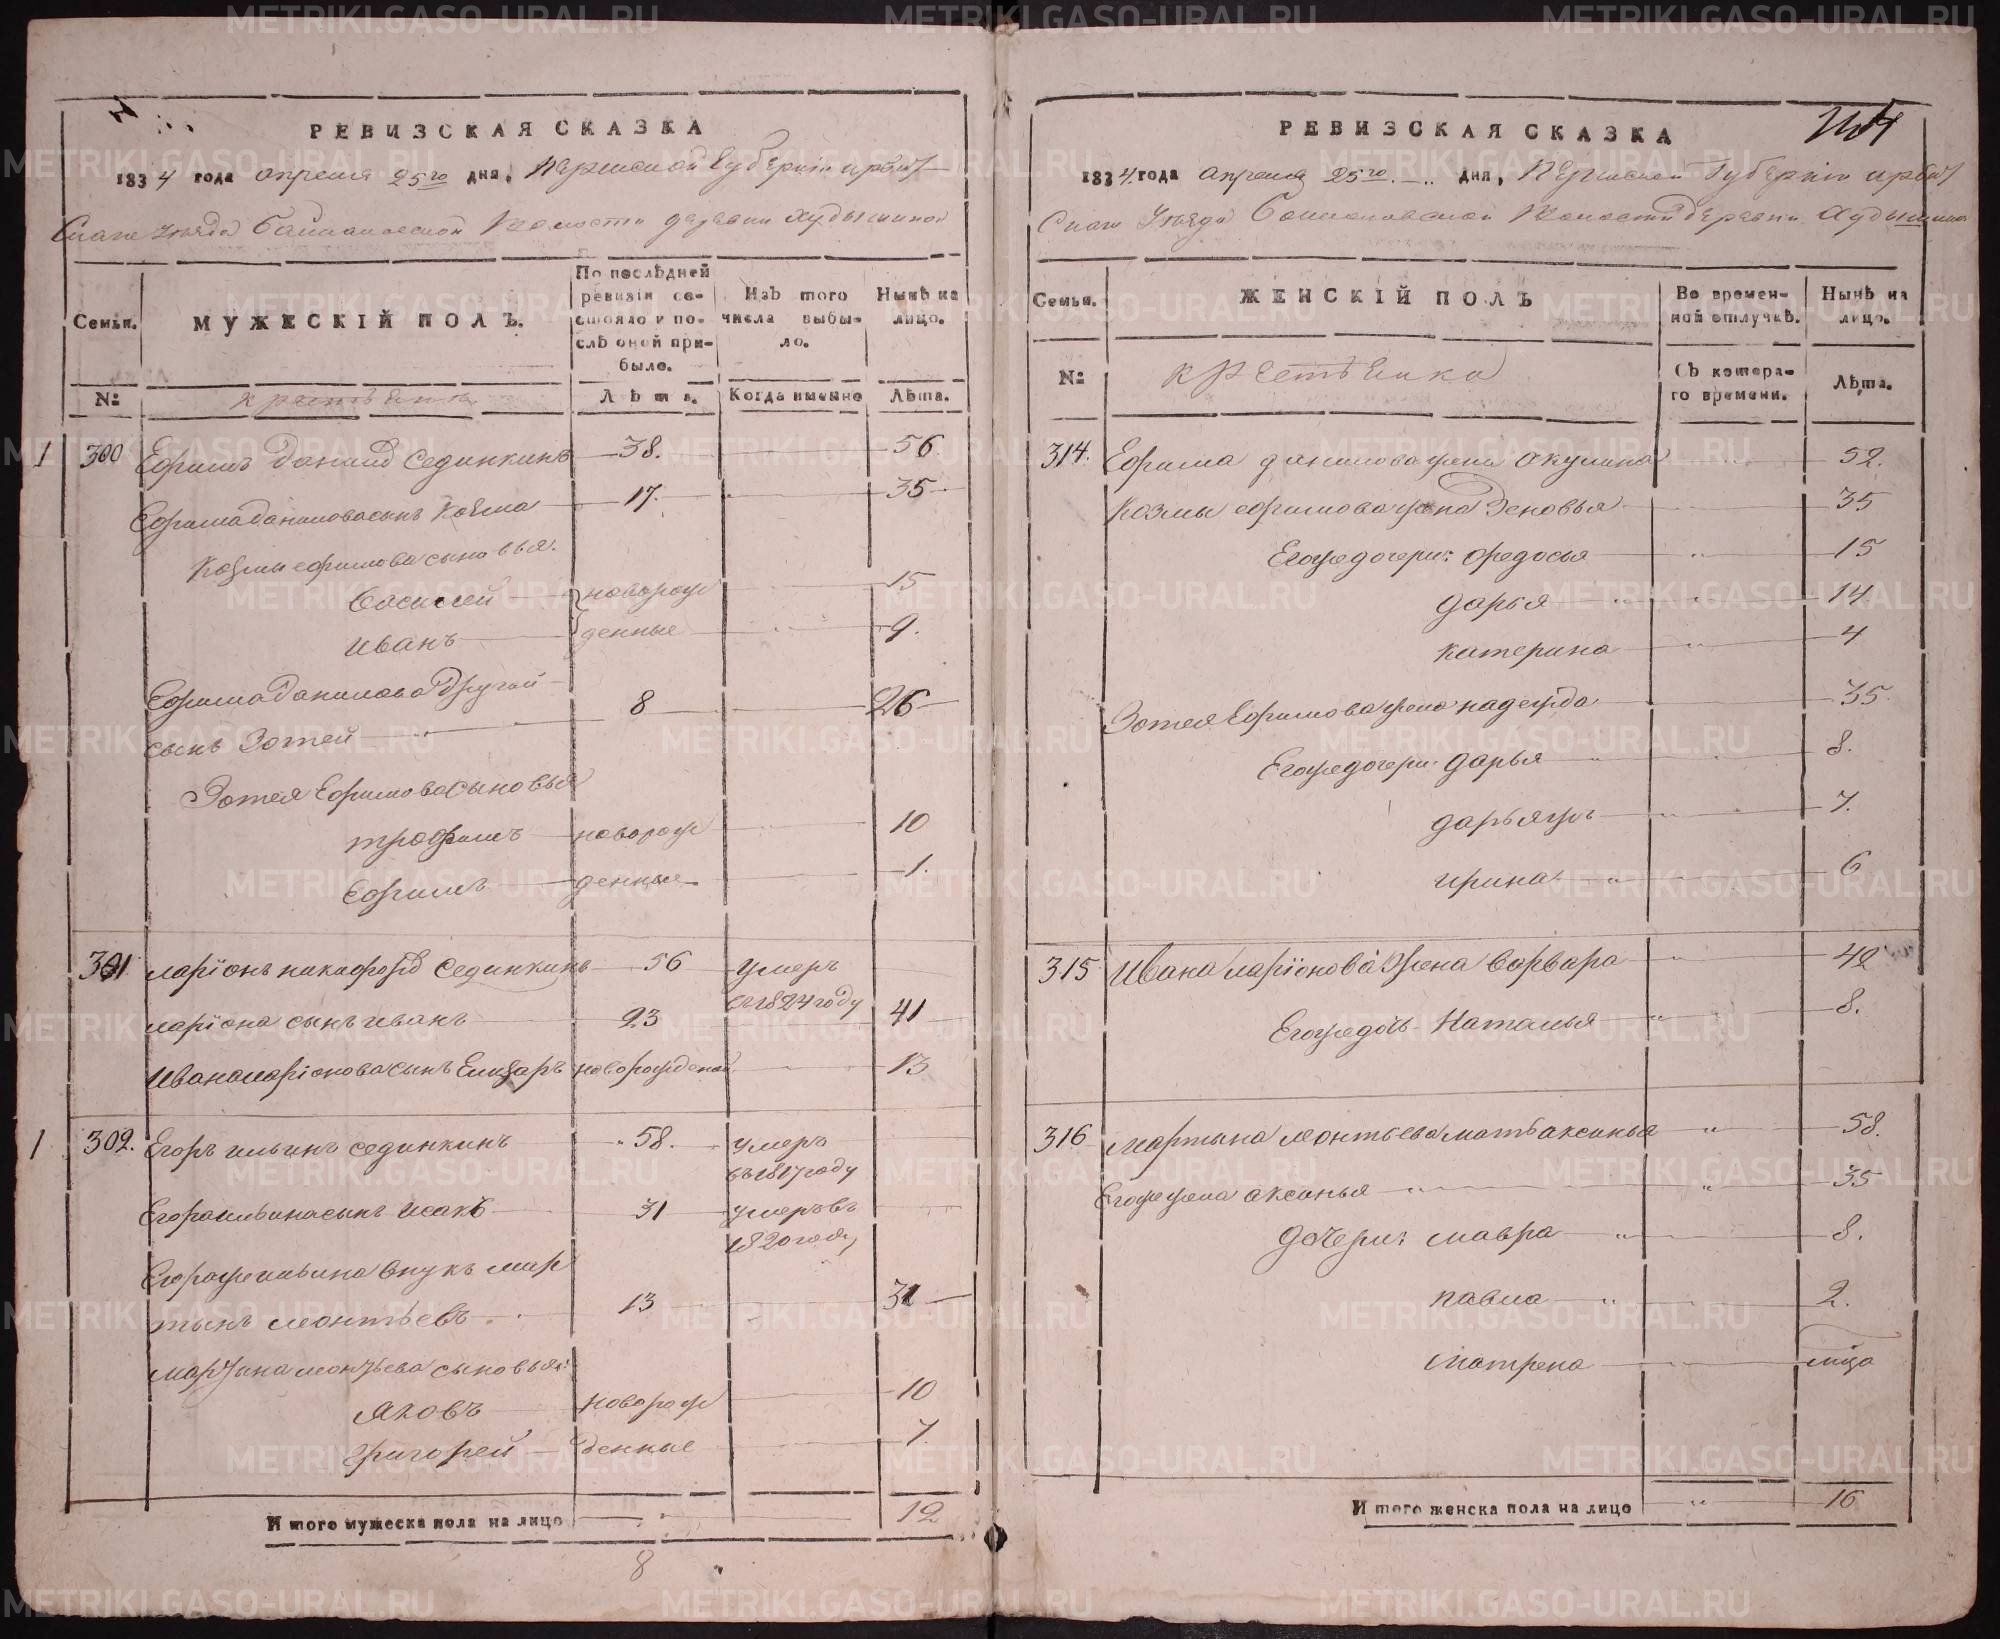 РЕВИЗСКАЯ СКАЗКА
1834 года апреля 25го дня, Пермской Губернiи ирбит
Скаго уезда волости деревни Худышиной
Семьи.
МУЖЕСКІЙ ПОЛЪ.
По послѣдней ревизіи состояло и послѣ оной прибыло.
Изъ того числа выбыло.
Нынѣ на лицо.
№
крестьяня
Лѣта.
Когда именно
Лѣта.
1 300 Ефимъ данилов Сединкинъ 38. 56
Ефима данилова сынъ Козма 17. 35
Козмы ефимова сыновья:
Василей новорож 15
Иванъ денные 9.
Ефима данилова другой
сынъ Зотей 8 26
Зотея Ефимова сыновья
трофимъ новорож 10
Ефимъ денные 1.
301 ларiонъ никифоров Сединкинъ 56 умеръ
въ 1824 году
ларiона сынъ иванъ 23 41
Ивана ларiонова сынъ Елизаръ новорожденой 13
1 302. Егоръ ильинъ сединкинъ 58. умеръ
въ 1817 году
Егора ильина сынъ Исакъ 31 умеръ въ
1820 году
Егора же ильина внукъ мар
тынъ леонтьевъ 13 31
мартына леонтьева сыновья:
яковъ новорож 10
григорей денные 7
И того мужеска пола на лицо 12
8
РЕВИЗСКАЯ СКАЗКА
1834 года апреля 25го дня, Пермской Губернiи ирбит
Скаго Уезда Волости деревни Худышиной
Семьи.
ЖЕНСКІЙ ПОЛЪ
Во временной отлучкѣ.
Нынѣ на лицо.
№
крестьянка
Съ котораго времени.
Лѣта.
314. Ефима данилова жена окулина 52.
Козмы ефимова жена Зеновья 35
Егоже дочери: федосья 15
дарья 14
катерина 4
Зотея Ефимова жена надежда 35.
Егоже дочери: дарья 8.
дарья жъ 7.
ирина 6
315 Ивана ларiонова жена варвара 42
Егоже дочь Наталья 8.
316 мартына леонтьева мать аксинья 58.
Егоже жена аксинья 35
дочери: мавра 8.
павла 2.
матрена
И того женска пола на лицо 16
METRIKI.GASO-URAL.RU